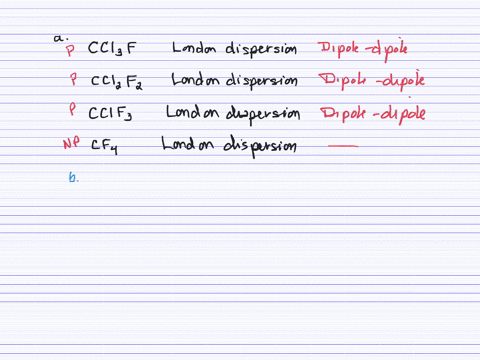 a.
P CCl3F London dispersion Dipole-dipole
P CCl2F2 London dispersion Dipole-dipole
P CClF3 London dispersion Dipole-dipole
NP CF4 London dispersion —
b.